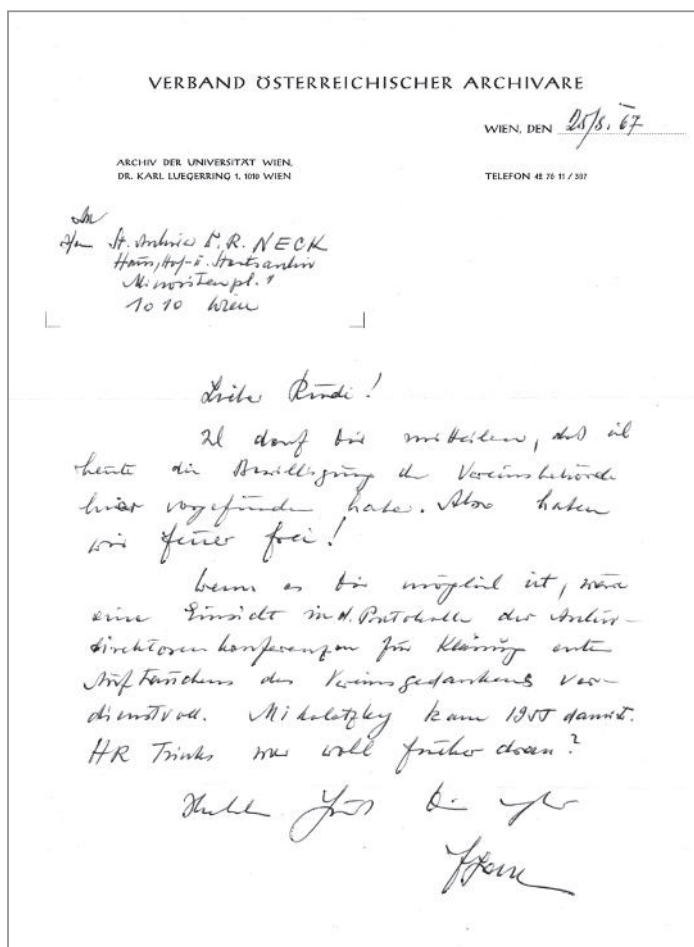 VERBAND ÖSTERREICHISCHER ARCHIVARE
WIEN, DEN 25/5. 67
ARCHIV DER UNIVERSITÄT WIEN,
DR. KARL LUEGERRING 1, 1010 WIEN
TELEFON 42 76 11 / 307
An
Herrn St. Archivar Dr. R. NECK
Haus, Hof- u. Staatsarchiv
Minoritenpl. 1
1010 Wien
Lieber Rudi!
Ich darf Dir mitteilen, daß ich
heute die Bewilligung der Vereinsbehörde
hier vorgefunden habe. Also haben
wir Feuer frei!
Wenn es Dir möglich ist, wäre
eine Einsicht in d. Protokolle der Archiv-
direktorenkonferenzen für Klärung ersten
Auftauchens des Vereinsgedankens ver-
dienstvoll. Mikoletzky kam 1955 damit.
HR Trinks war wohl früher dran?
Gruß Dein